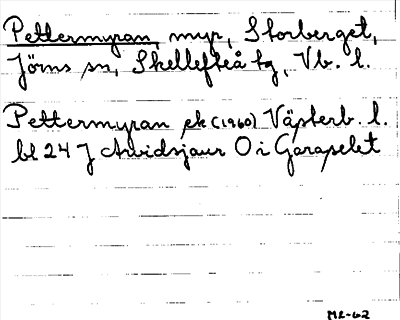 Pettermyran, myr, Storberget,
Jörns sn, Skellefteå tg, Vb. l.
Pettermyran ek (1960) Västerb. l.
bl 24 J Arvidsjaur O i Garapelet
ML-62